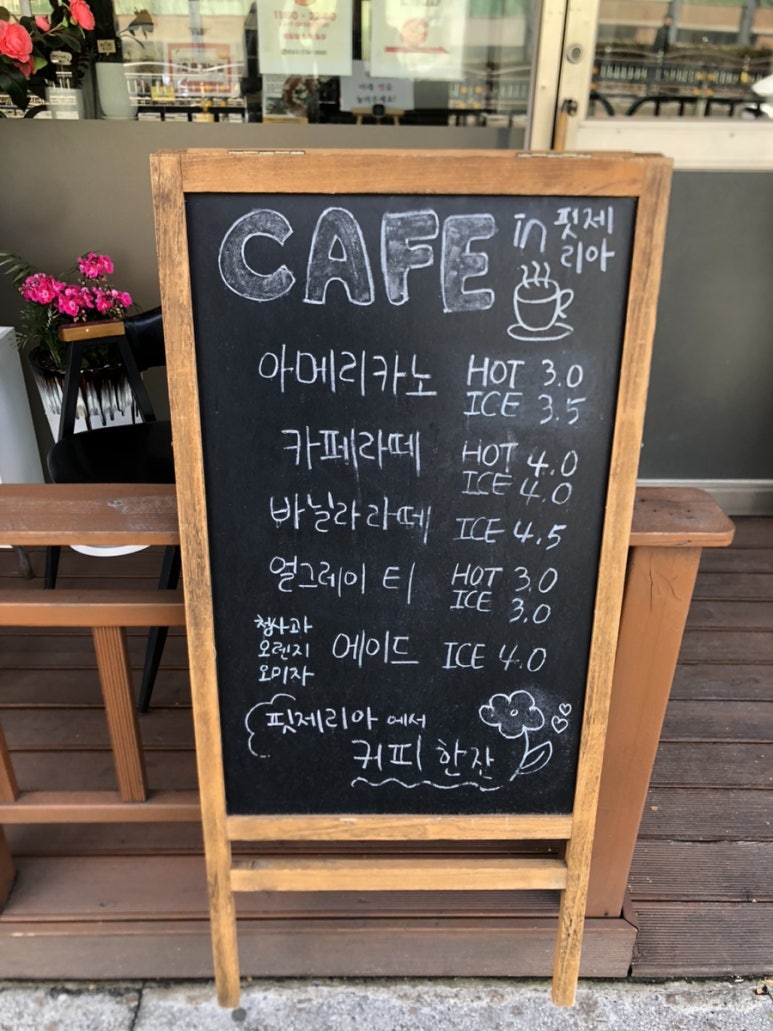 CAFE in 핏제
리아
아메리카노 HOT 3.0
ICE 3.5
카페라떼 HOT 4.0
ICE 4.0
바닐라라떼 ICE 4.5
얼그레이 티 HOT 3.0
ICE 3.0
청사과
오렌지 에이드 ICE 4.0
오미자
핏제리아 에서
커피 한잔